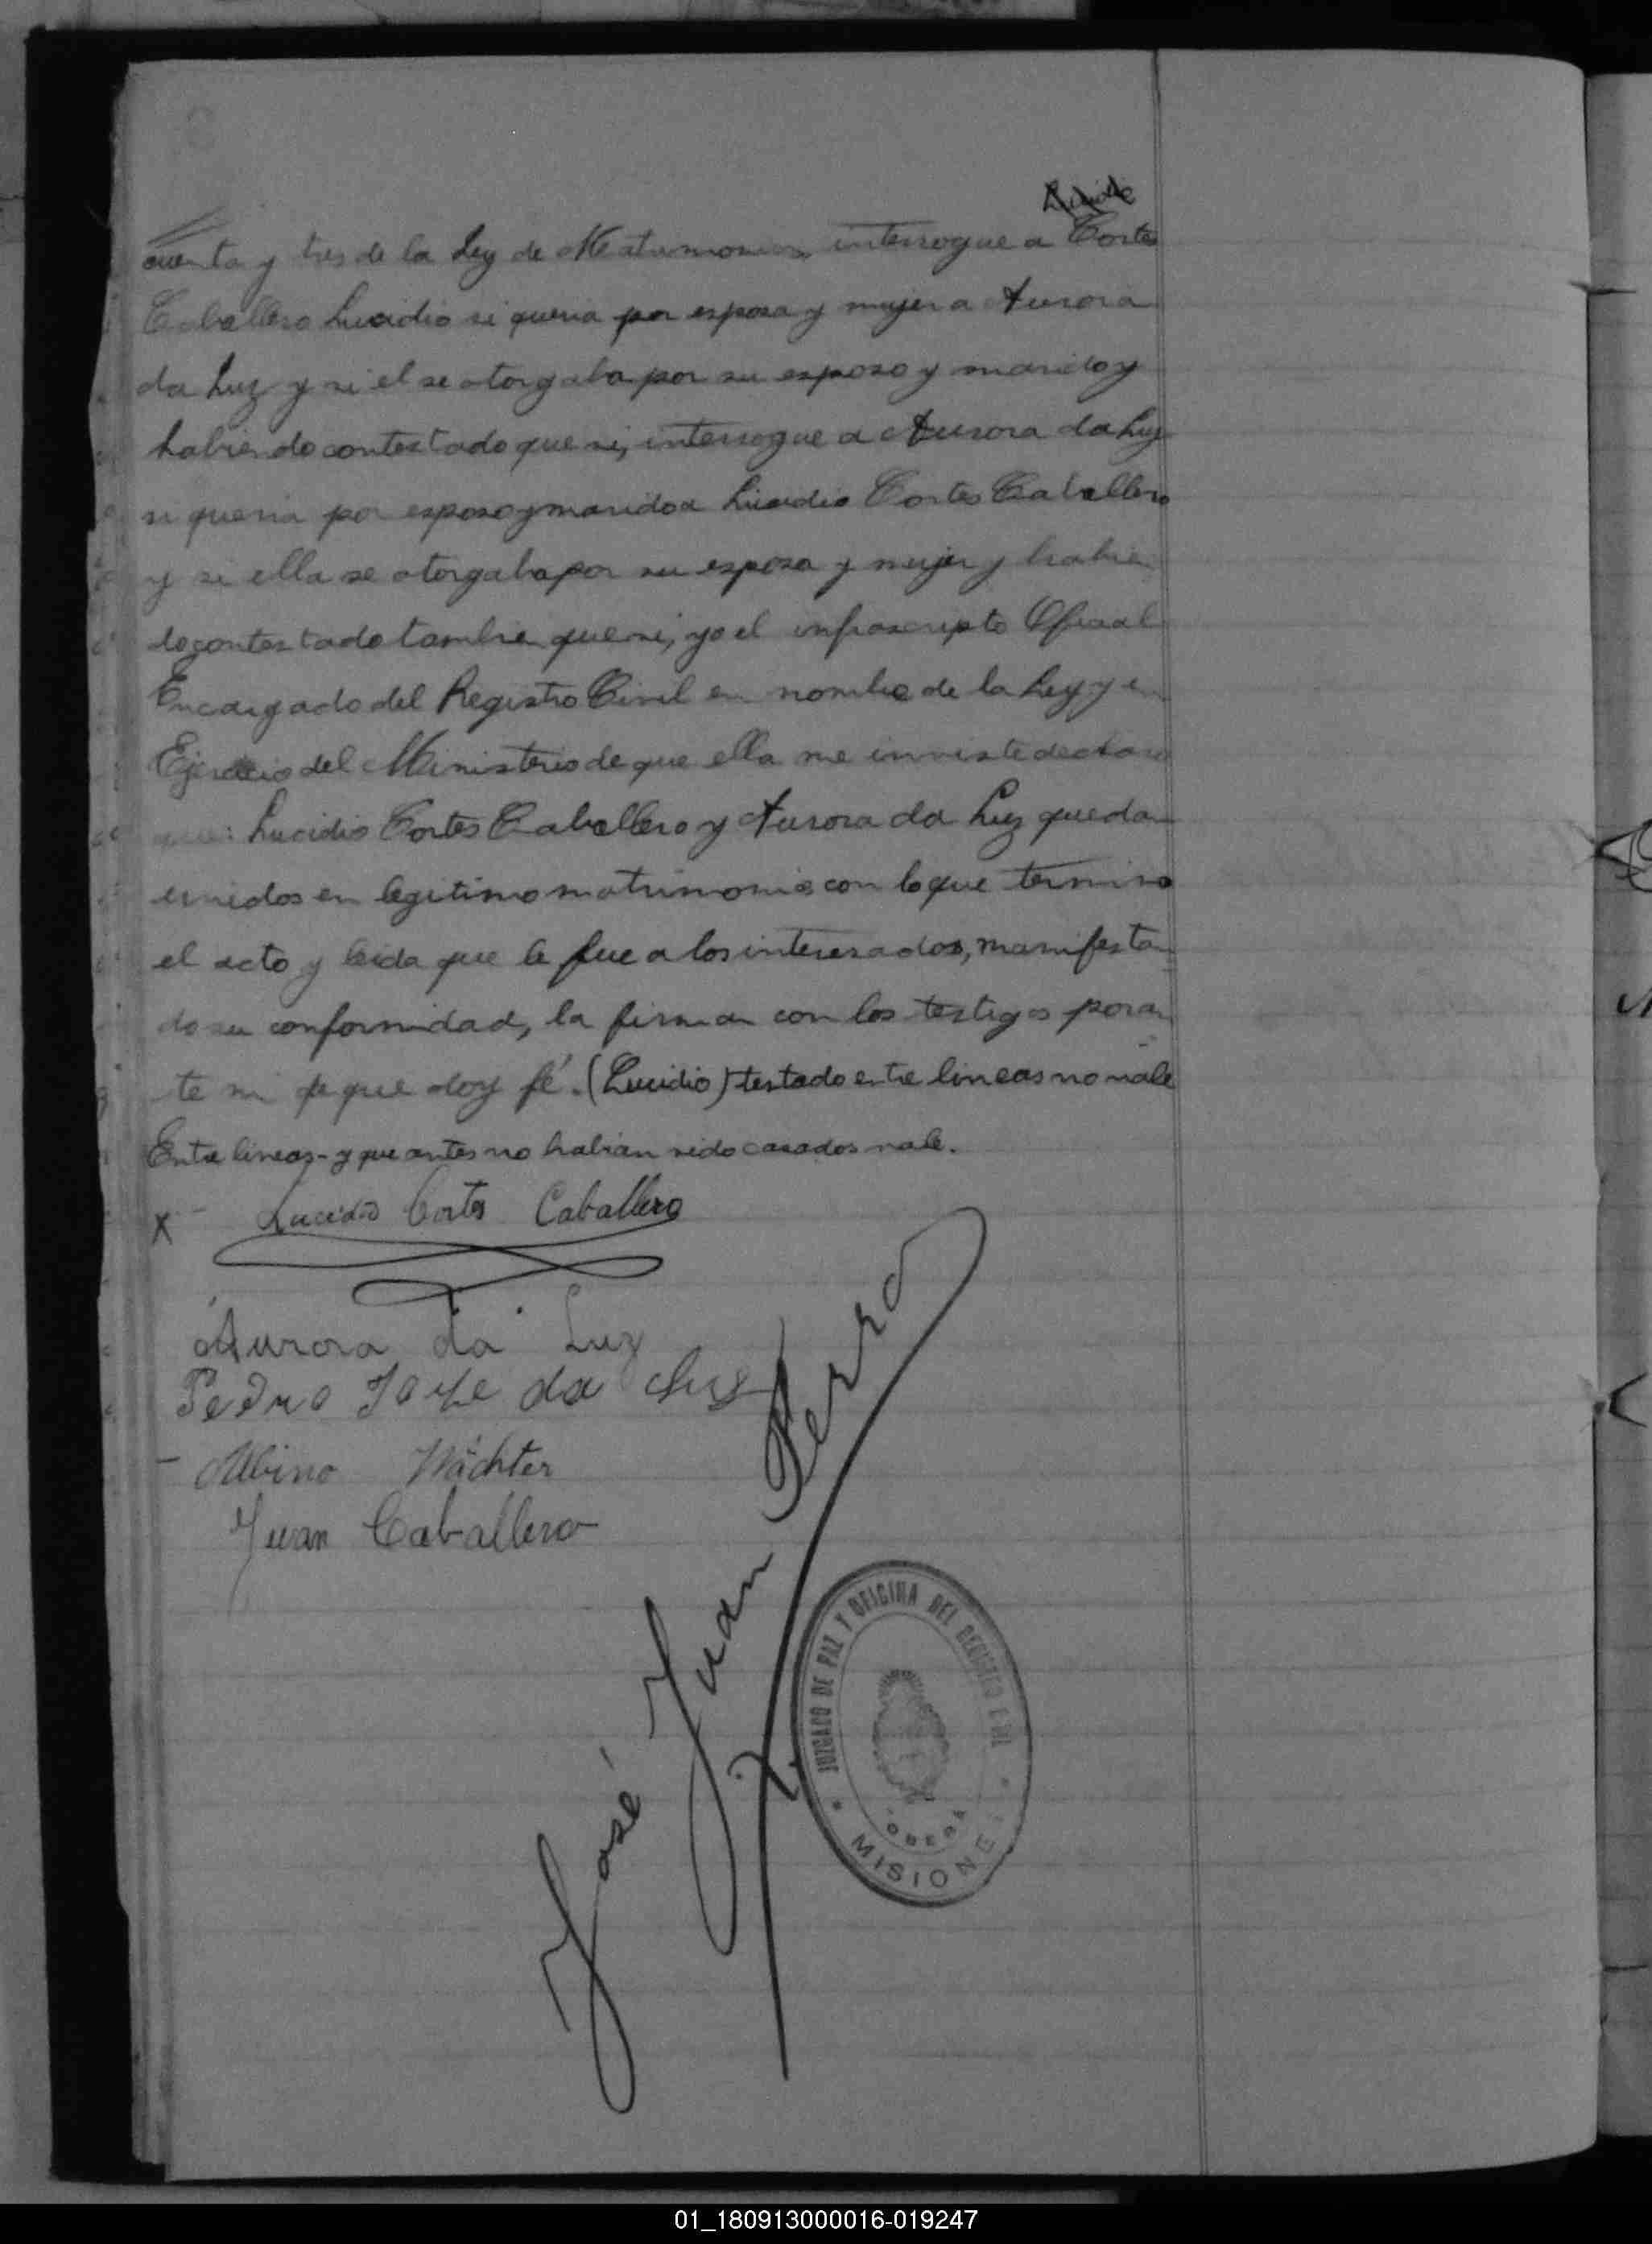 cuenta y tres de la Ley de Matrimonios, interrogue a Cortes
Caballero Lucidio si queria por esposa y mujer a Aurora
da Luz y si el se otorgaba por su esposo y marido y
habiendo contestado que si, interrogue a Aurora da Luz
si queria por esposo y marido a Lucidio Cortes Caballero
y si ella se otorgaba por su esposa y mujer y habien
do contestado tambien que si, yo el infrascripto Oficial
Encargado del Registro Civil en nombre de la Ley y en
Ejercicio del Ministerio de que ella me inviste declaro
que: Lucidio Cortes Caballero y Aurora da Luz quedan
unidos en legitimo matrimonio con lo que termino
el acto y leida que le fue a los interesados, manifestan
do su conformidad, la firman con los testigos por an
te mi de que doy fé. (Lucidio) testado entre lineas no vale
Entre lineas - y que antes no habian sido casados vale.
x Lucidio Cortes Caballero
Aurora da Luz
Pedro José da Luz
Albino Wächter
Juan Caballero
José Juan Perro
JUZGADO DE PAZ Y OFICINA DEL REGISTRO CIVIL
OBERA
MISIONES
01_180913000016-019247